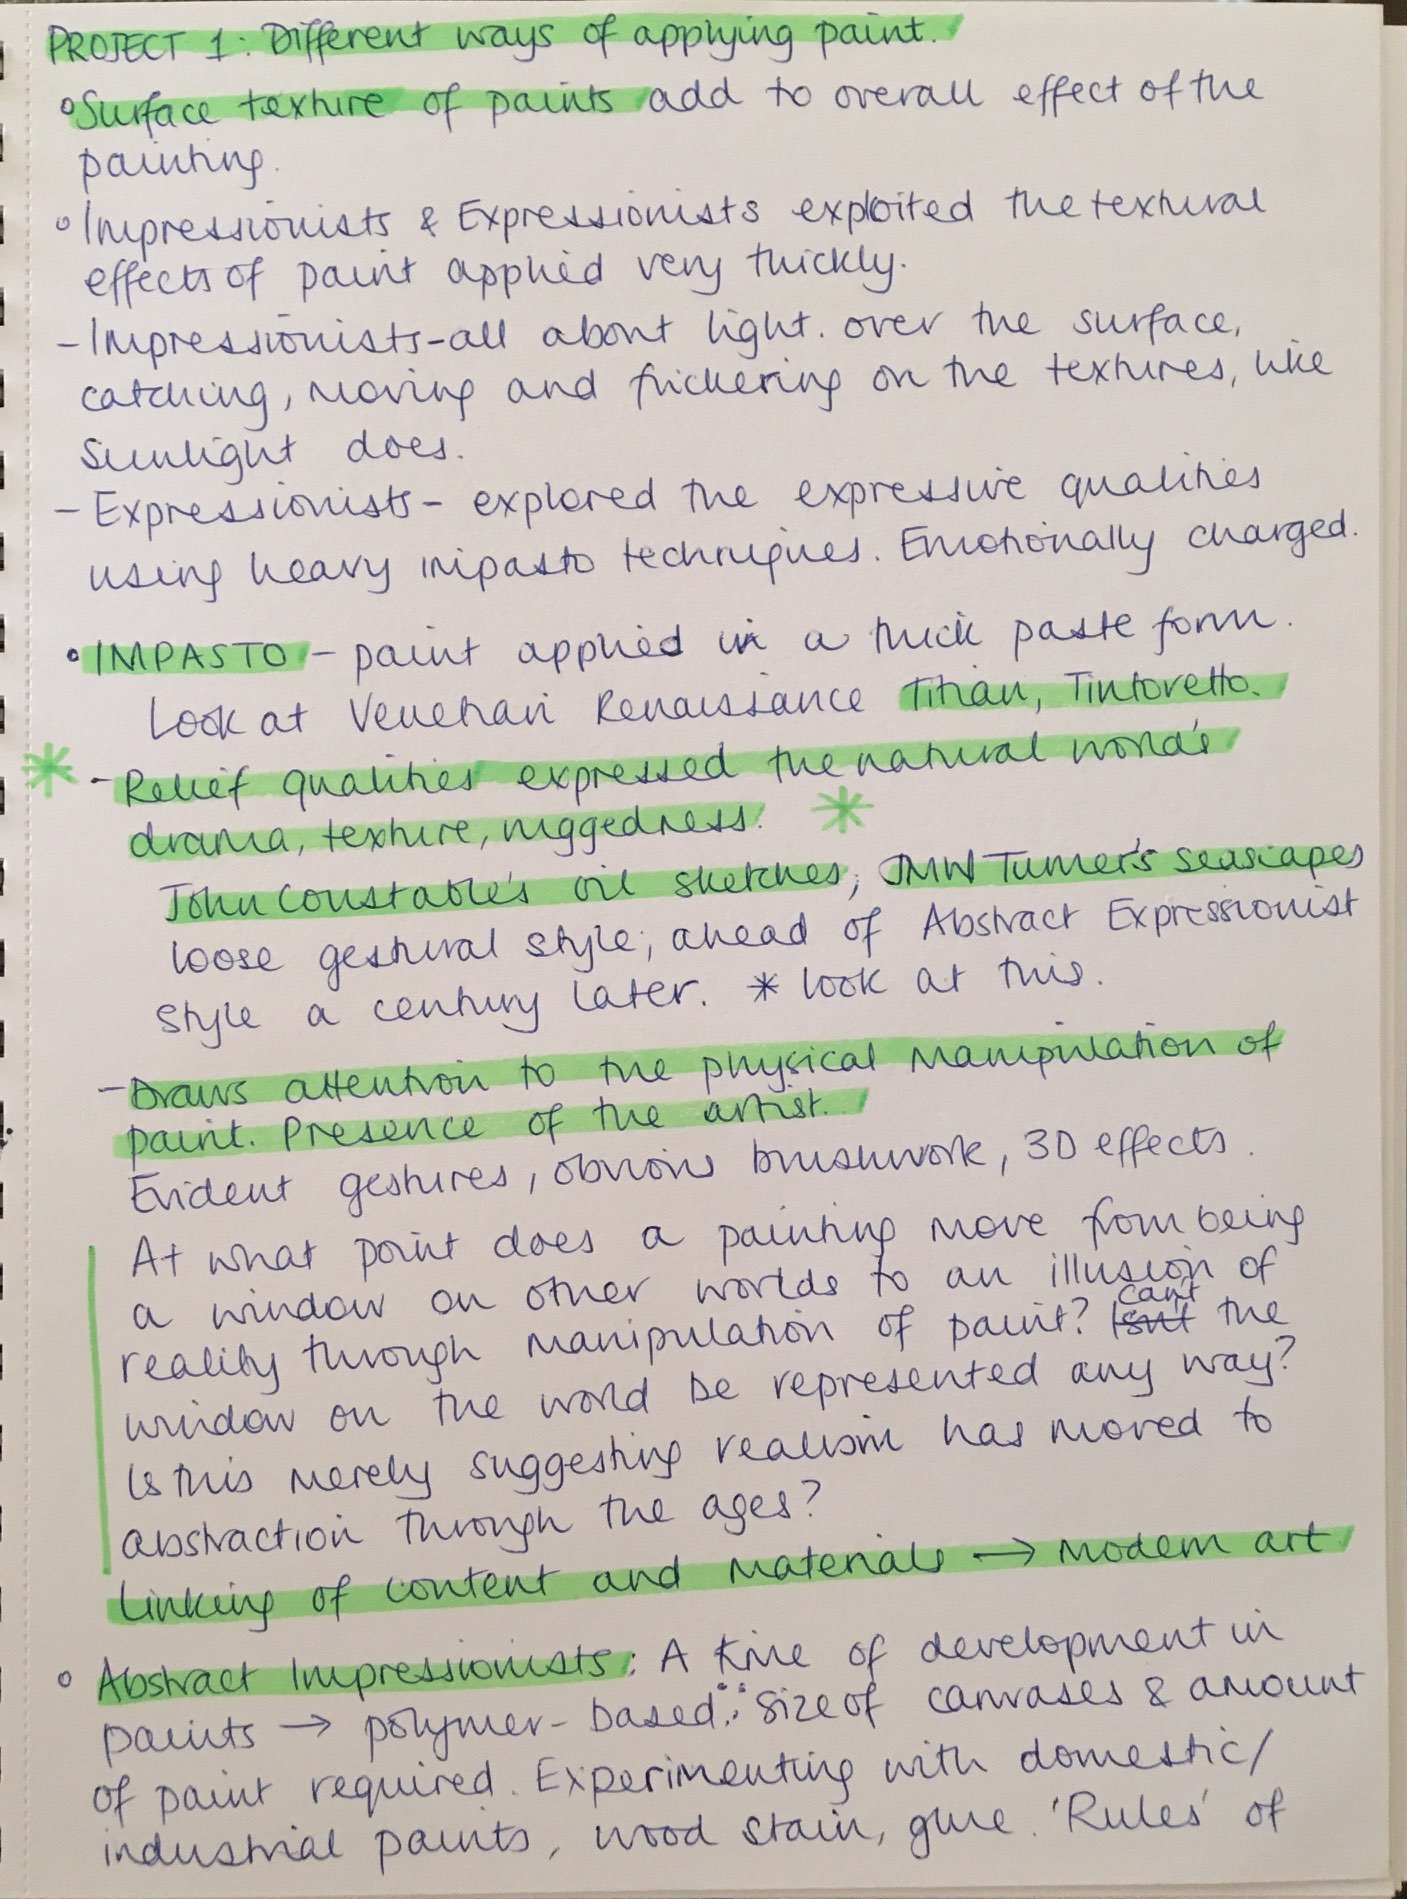 PROJECT 1: Different ways of applying paint.
° Surface texture of paints add to overall effect of the
painting.
° Impressionists & Expressionists exploited the textural
effects of paint applied very thickly.
- Impressionists - all about light. over the surface,
catching, moving and flickering on the textures, like
sunlight does.
- Expressionists - explored the expressive qualities
using heavy impasto techniques. Emotionally charged.
• IMPASTO - paint applied in a thick paste form.
Look at Venetian Renaissance Titian, Tintoretto.
* - Relief qualities expressed the natural world's
drama, texture, ruggedness. *
John Constable's oil sketches, JMW Turner's seascapes
loose gestural style, ahead of Abstract Expressionist
style a century later. * look at this.
- Draws attention to the physical manipulation of
paint. Presence of the artist.
Evident gestures, obvious brushwork, 3D effects.
At what point does a painting move from being
a window on other worlds to an illusion of
reality through manipulation of paint? ~~Isn't~~ can't the
window on the world be represented any way?
Is this merely suggesting realism has moved to
abstraction through the ages?
Linking of content and materials → modern art
° Abstract Impressionists: A time of development in
paints → polymer-based ∵ size of canvases & amount
of paint required. Experimenting with domestic/
industrial paints, wood stain, glue. 'Rules' of